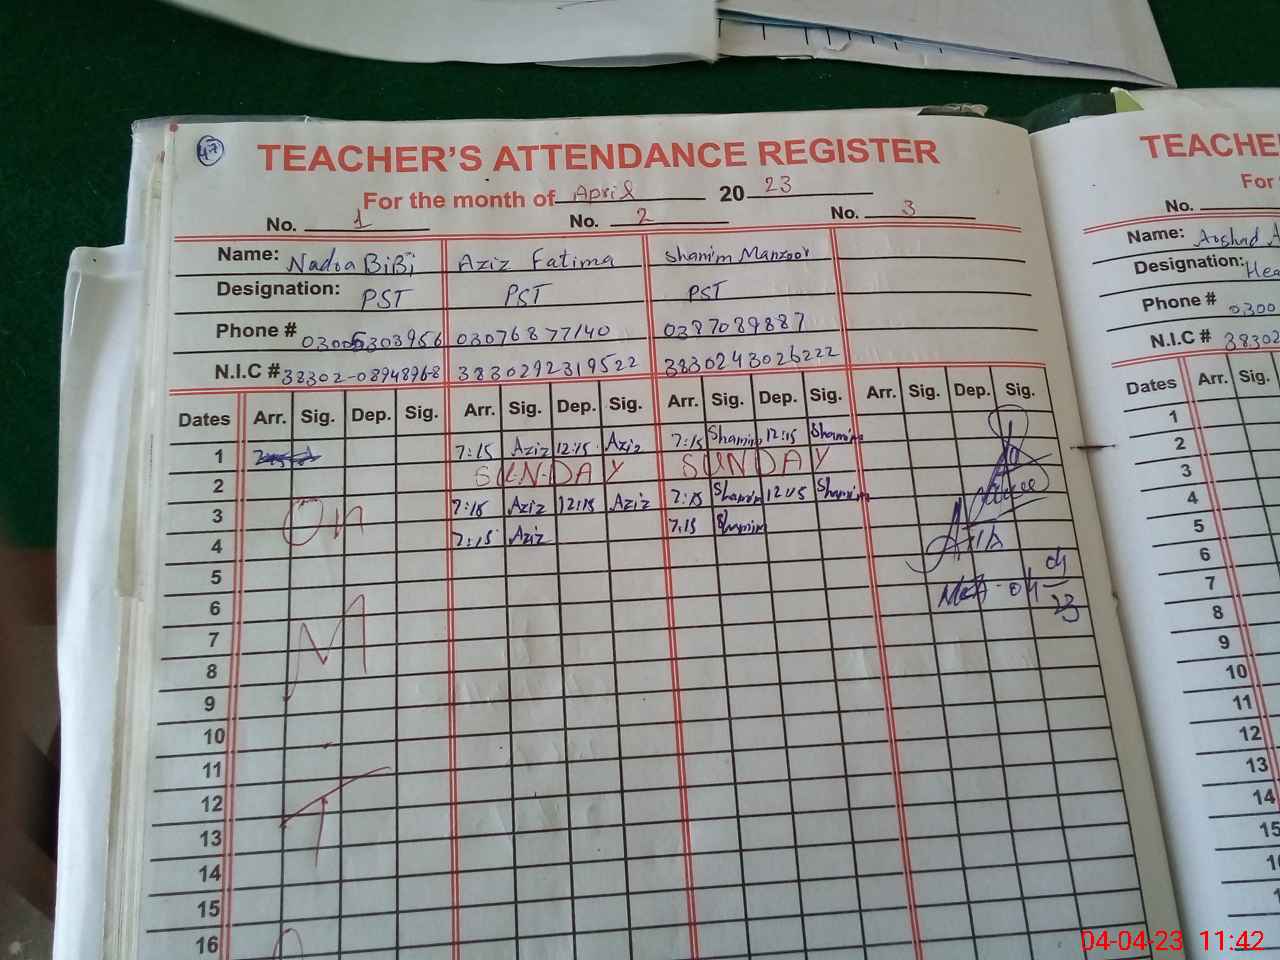 47
TEACHER'S ATTENDANCE REGISTER
For the month of April 2023
No. 1 No. 2 No. 3
Name: Nadia BiBi Aziz Fatima Shamim Manzoor
Designation: PST PST PST
Phone # 03076877140 0387089887
N.I.C # 38302-0894896-8 3830292319522 3830243026222
Dates Arr. Sig. Dep. Sig. Arr. Sig. Dep. Sig. Arr. Sig. Dep. Sig. Arr. Sig. Dep. Sig.
1 7:15 Aziz 12:15 Aziz 7:15 Shamim 12:15 Shamim
2 SUNDAY SUNDAY
3 7:15 Aziz 12:15 Aziz 7:15 Shamim 12:15 Shamim
4 7:15 Aziz 7:15 Shamim
5
6
7
8
9
10
11
12
13
14
15
16
On
M
T
04
04
23
TEACHE
For
No.
Name: Arshad A
Designation: Hea
Phone # 0300
N.I.C # 38302
Dates Arr. Sig.
1
2
3
4
5
6
7
8
9
10
11
12
13
14
15
04-04-23 11:42